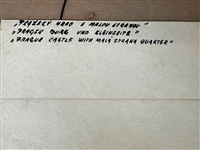 „PRAŽSKÝ HRAD S MALOU STRANOU"
„PRAGER BURG UND KLEINSEITE"
„PRAGUE CASTLE WITH MALA STRANA QUARTER"